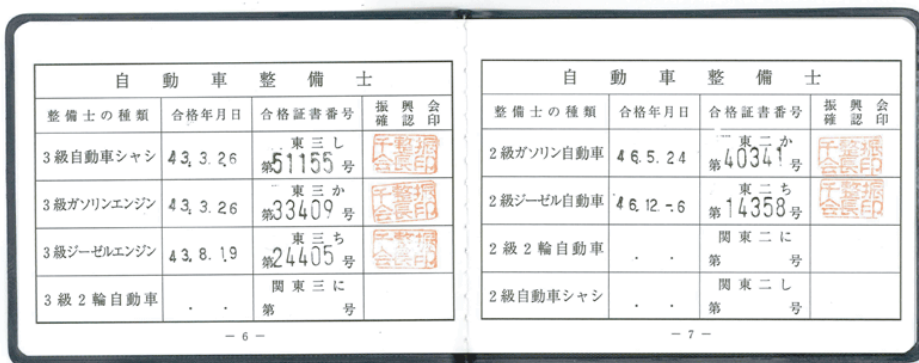 自動車整備士
整備士の種類 合格年月日 合格証書番号 振興会確認印
3級自動車シャシ 43.3.26 東三し第51155号
3級ガソリンエンジン 43.3.26 東三か第33409号
3級ジーゼルエンジン 43.8.19 東三ち第24405号
3級2輪自動車 . . 関東三に第 号
― 6 ―
自動車整備士
整備士の種類 合格年月日 合格証書番号 振興会確認印
2級ガソリン自動車 46.5.24 東二か第40341号
2級ジーゼル自動車 46.12.-6 東二ち第14358号
2級2輪自動車 . . 関東二に第 号
2級自動車シャシ . . 関東二し第 号
― 7 ―